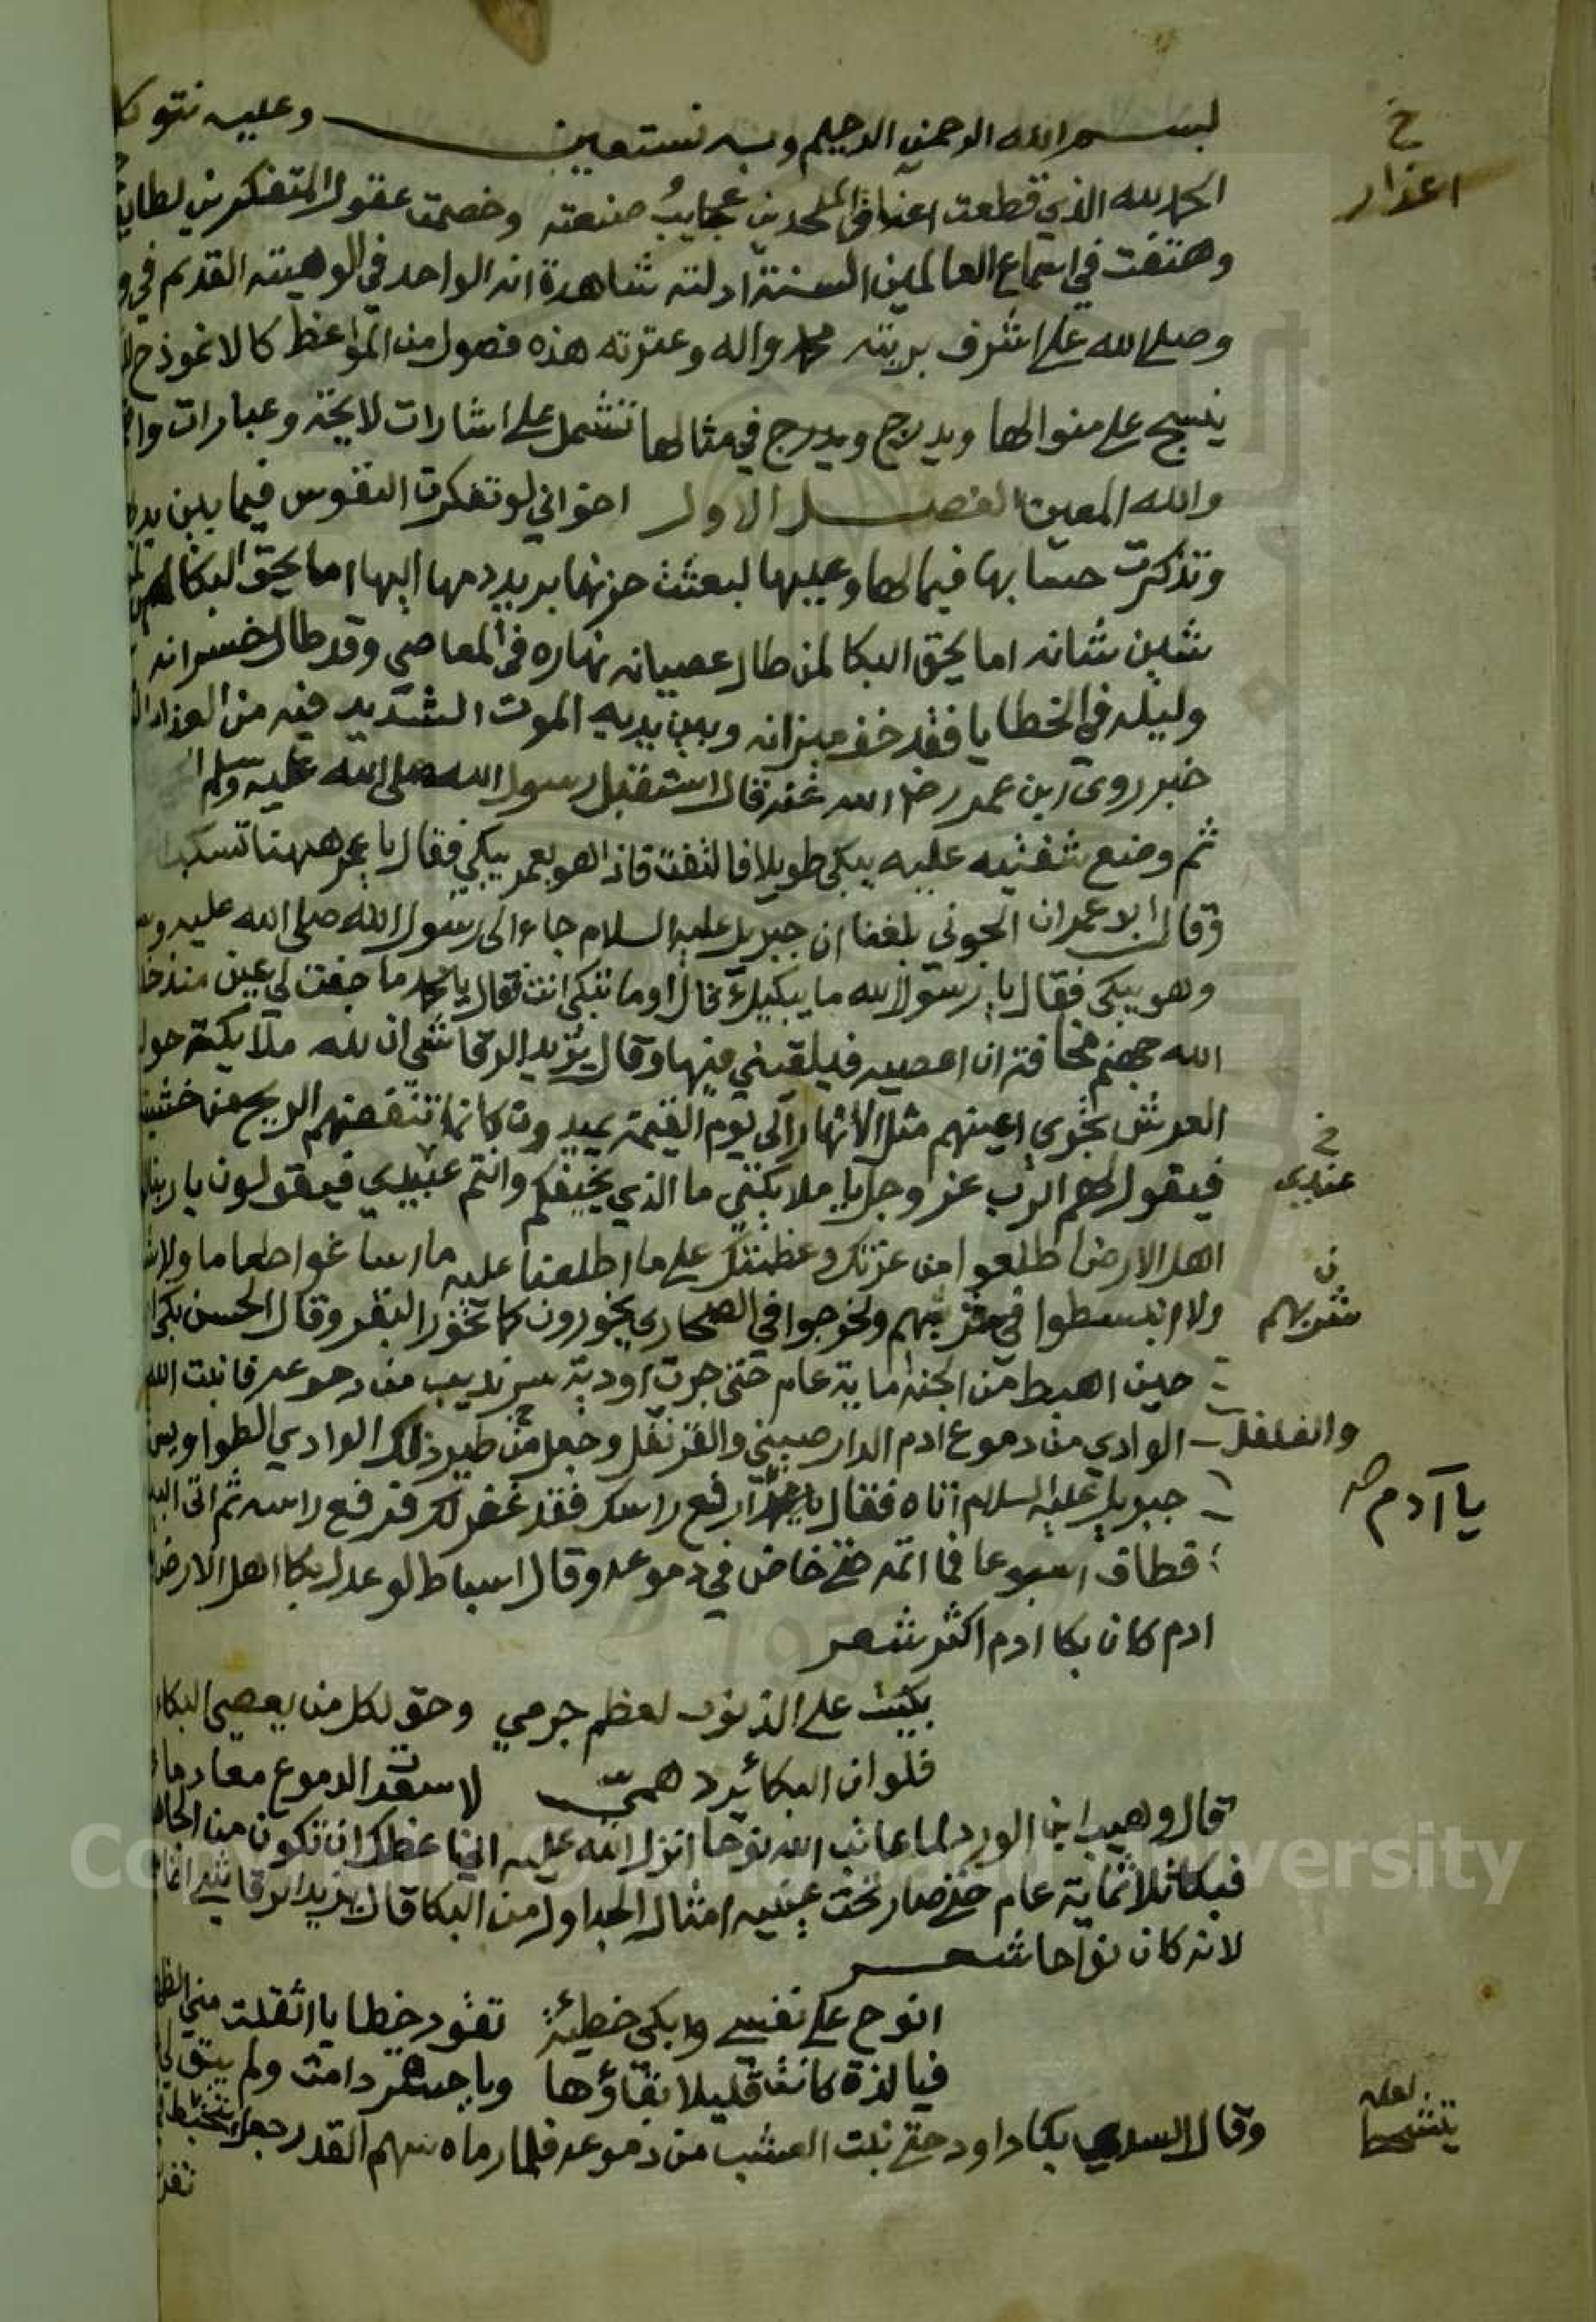 بسم الله الرحمن الرحيم وبه نستعين وعليه نتوكل
خ
اعذار
الحمد لله الذي قطعت اعناق الملحدين عجايبُ صنعته وخصمت عقول المتفكرين لطايف
وهتفت في اسماع العالمين السنة ادلته شاهدة انه الواحد في الوهيته القديم في
وصلى الله على اشرف بريته محمد واله وعترته هذه فصول من المواعظ كالانموذج
ينسج على منوالها ويدرج ويدرج في مثالها تشمل على اشارات لايحة وعبارات
والله المعين الفصل الاول اخواني لو تفكرت النفوس فيما بين
وتذكرت حسابها فيما لها وعليها لبعثت حزنها بريد دمها اليها اما يحق البكا
شين شانه اما يحق البكا لمن طال عصيانه نهاره في المعاصي وقد طال خسرانه
وليله في الخطايا فقد خف ميزانه وبين يديه الموت الشديد فيه من العذاب
خبر روى ابن عمر رضي الله عنه قال استقبل رسول الله صلى الله عليه وسلم
ثم وضع شفتيه عليه يبكي طويلا فالتفت فاذا هو بعمر يبكي فقال يا عمر ههنا تسكب
وقال ابو عمران الجوني بلغنا ان جبريل عليه السلام جاء الى رسول الله صلى الله عليه
وهو يبكي فقال يا رسول الله ما يبكيك قال اوما تبكي انت فقال يا محمد ما جفت لي عين منذ
الله جهنم مخافة ان اعصيه فيلقيني فيها وقال يزيد الرقاشي ان لله ملايكة حول
العرش تجري اعينهم مثل الانهار الى يوم القيمة يميدون كانما تنفضهم الريح من خشية
فيقول لهم الرب عز وجل يا ملايكتي ما الذي يخيفكم وانتم عبيدي فيقولون يا ربنا
خ
عندي
اهل الارض اطلعوا من عزتك وعظمتك على ما اطلعنا عليه ما اساغوا طعاما
ولا انبسطوا في فرشهم ولخرجوا في الصحاري يخورون كما تخور البقر وقال الحسن
ن
شربهم
حين اهبط من الجنة ماية عام حتى جرت اودية سرنديب من دموعه فانبت الله
الوادي من دموع ادم الدارصيني والقرنفل وجعل من طير ذلك الوادي الطواويس
والفلفل
جبريل عليه السلام اتاه فقال يا ارفع راسك فقد غفر لك فرفع راسه ثم اتى
يا آدم صح
فطاف اسبوعا فما اتمه حتى خاض في دموعه وقال اسباط لو عدل بكا اهل الارض
ادم كان بكا ادم اكثر شعر
بكيت على الذنوب لعظم جرمي وحق لكل من يعصي البكاء
فلو ان البكا يرد همي لاسعفت الدموع معا دماء
قال وهيب ابن الورد لما عاتب الله نوحا انزل الله عليه اني اعظك ان تكون من
فبكا ثلاثماية عام حتى صار تحت عينيه امثال الجداول من البكا قال يزيد الرقاشي
لانه كان نواحا شعر
انوح على نفسي وابكي خطيئة تقود خطايا اثقلت مني
فيا لذة كانت قليلا بقاؤها ويا حسرة دامت ولم يبق لي
وقال السدي بكا داود حتى نبت العشب من دموعه فلما رماه سهم القدر جعل يتخبط
لعله
يتشحط